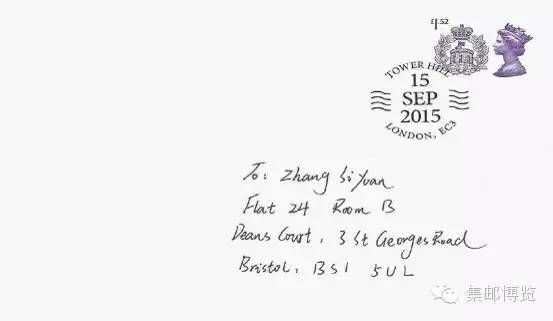 £1.52
TOWER HILL
15
SEP
2015
LONDON, EC3
To: Zhang Si Yuan
Flat 24 Room B
Deans Court, 3 St Georges Road
Bristol, BS1 5UL
集邮博览